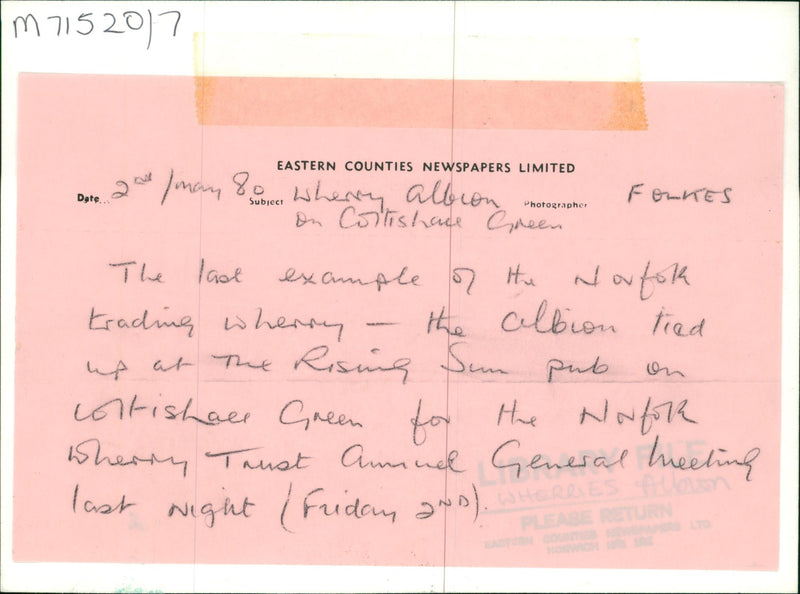 M71520/7
EASTERN COUNTIES NEWSPAPERS LIMITED
Date... 2nd/May 80 Subject Wherry Albion Photographer FOLKES
on Coltishall Green
The last example of the Norfolk
trading wherry — the Albion tied
up at The Rising Sun pub on
Coltishall Green for the Norfolk
Wherry Trust Annual General Meeting
last Night (Friday 2ND).
LIBRARY FILE
WHERRIES Albion
PLEASE RETURN
EASTERN COUNTIES NEWSPAPERS LTD
NORWICH NR1 1RE